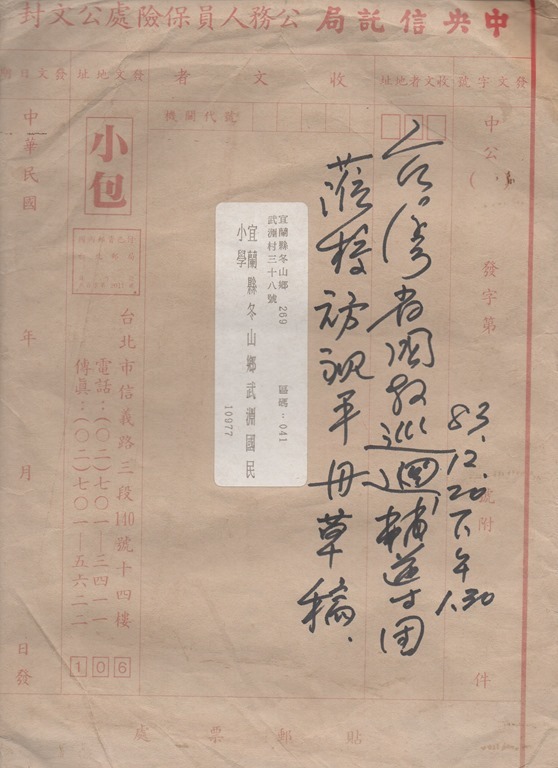 中央信託局公務人員保險處公文封
發文字號
收文者地址
收文者
發文地址
發文日期
機關代號
中公(
發字第
號附
件
83.12.20下午1.30
台灣省國教巡迴輔導團
蒞校訪視手冊草稿.
宜蘭縣冬山鄉 269 區碼:041
武淵村三十八號
宜蘭縣冬山鄉武淵國民
小學
10977
小包
台北市信義路三段140號十四樓
電話:(〇二)七〇一—三四一一
傳真:(〇二)七〇一—五六二二
106
中華民國
年
月
日發
貼郵票處